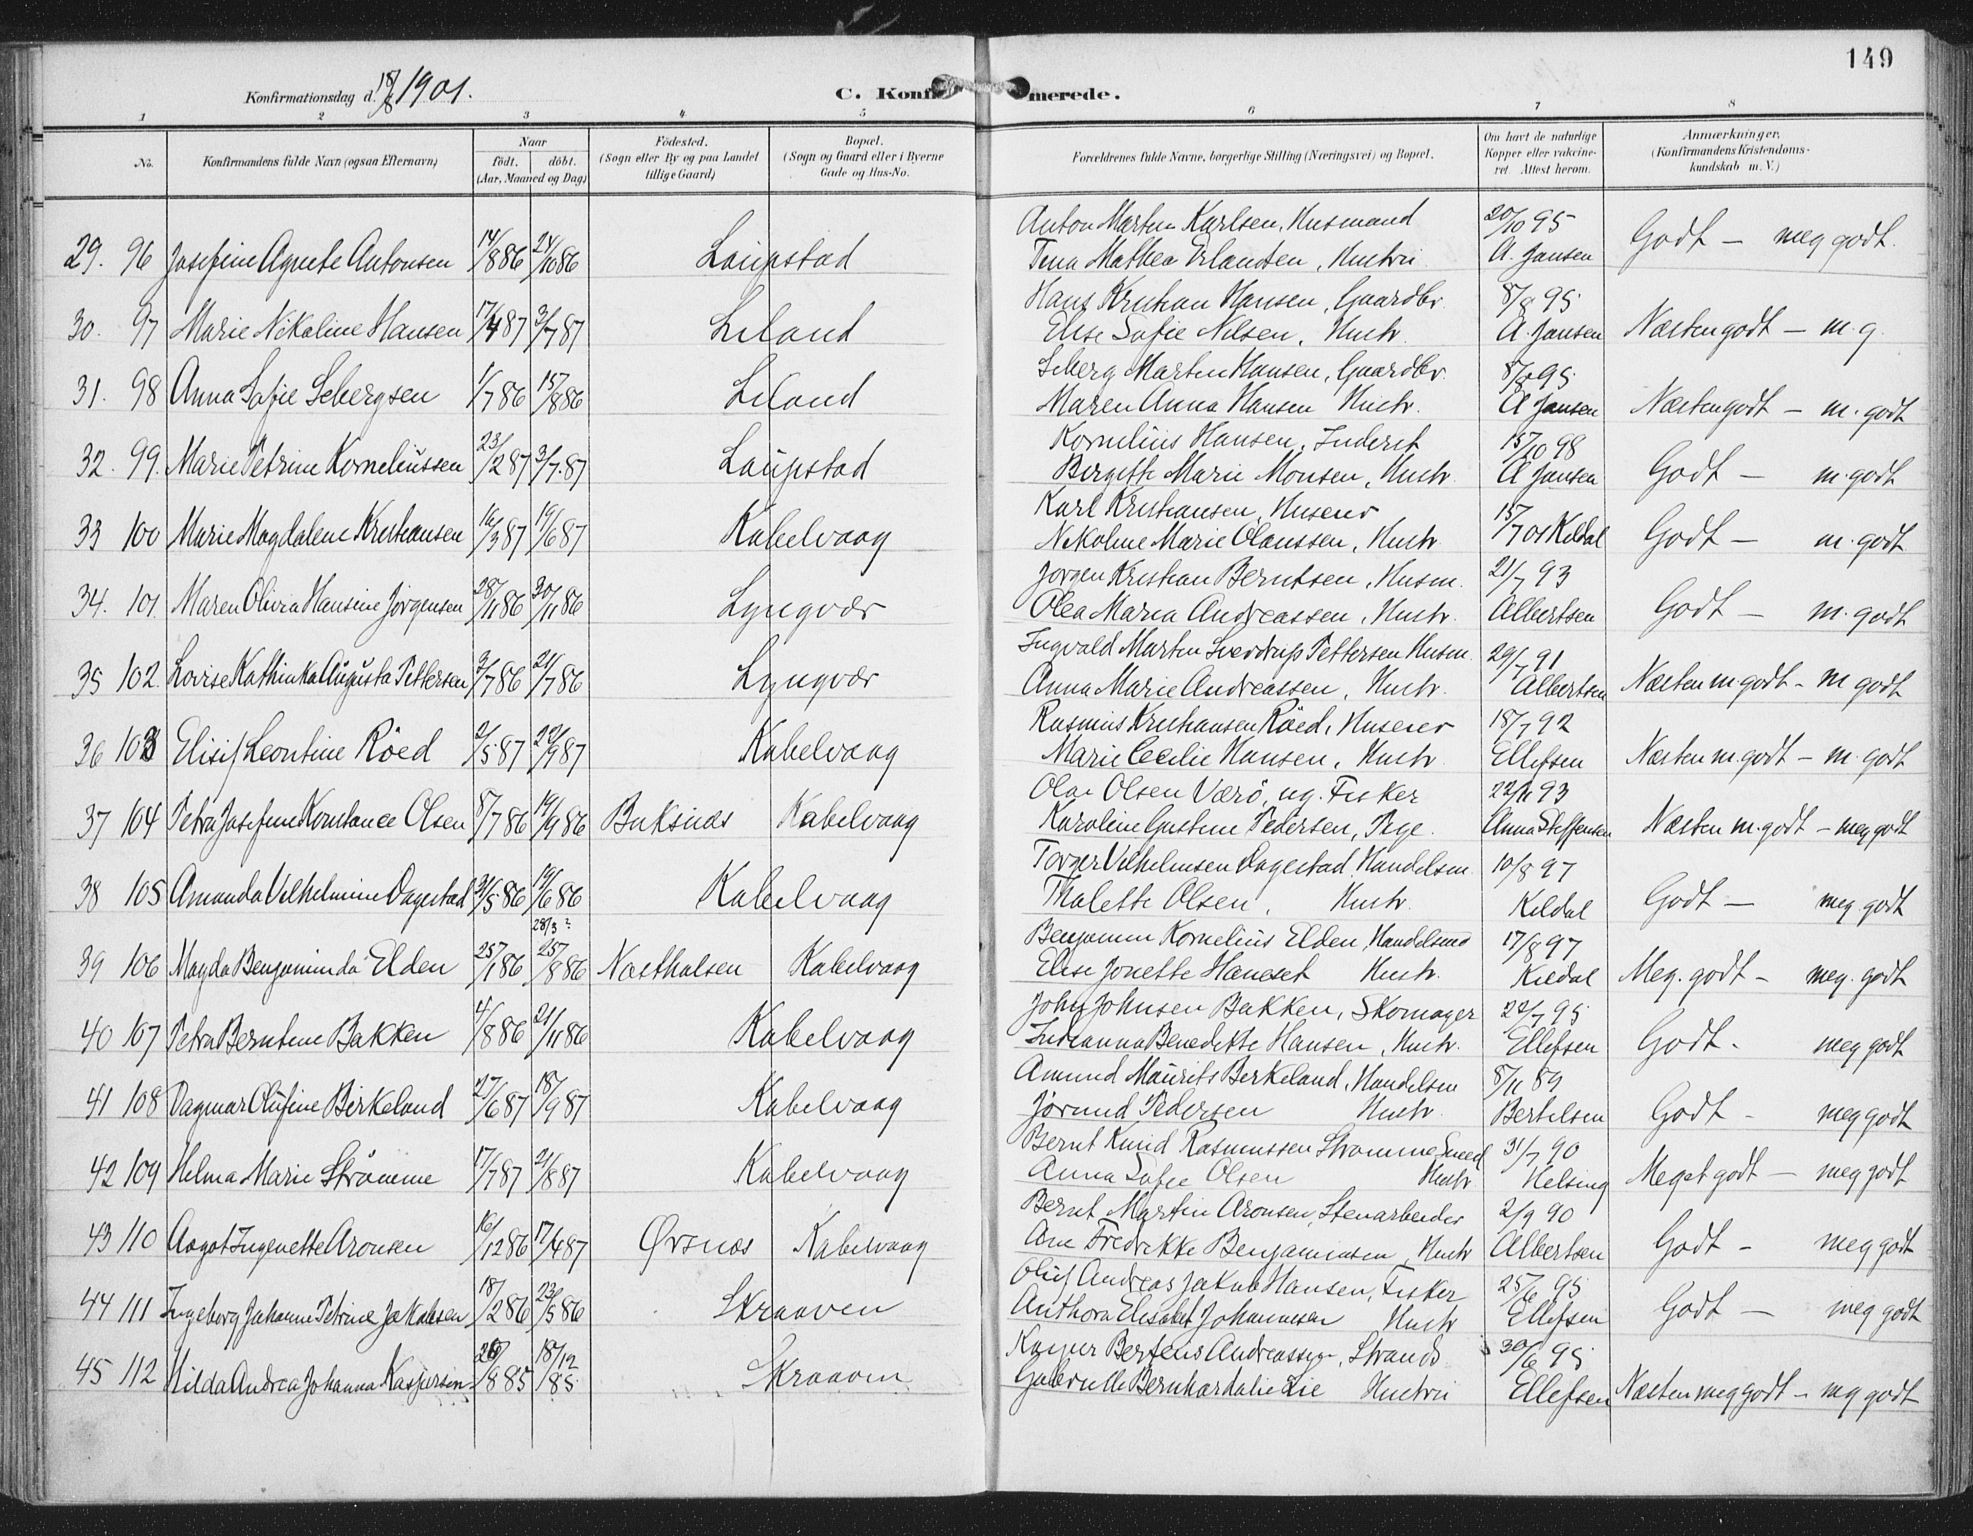 149
Konfirmationsdag d. 18/8 1901.
C. Konfirmerede.
1 2 3 4 5 6 7 8
No. Konfirmandens fulde Navn (ogsaa Efternavn) Naar født. døbt. (Aar, Maaned og Dag) Fødested. (Sogn eller By og paa Landet tillige Gaard) Bopæl. (Sogn og Gaard eller i Byerne Gade og Hus-No. Forældrenes fulde Navne, borgerlige Stilling (Næringsvei) og Bopæl. Om havt de naturlige Kopper eller vakcineret. Attest herom. Anmærkninger. (Konfirmandens Kristendomskundskab m. V.)
Anton Martin Karlsen, Husmand 20/10 95
29. 96 Josefine Agnete Antonsen 14/8 86 24/10 86 Laupstad Tina Mathea Erlandsen, Hustru A. Jansen Godt — meg godt.
Hans Kristian Hansen, Gaardbr. 8/8 95
30. 97 Marie Nikoline Hansen 17/4 87 3/7 87 Liland Elise Sofie Nilsen, Hustr. A. Jansen Næsten godt — m. g.
Seberg Martin Hansen, Gaardbr. 8/8 95
31. 98 Anna Sofie Sebergsen 1/7 86 15/8 86 Liland Maren Anna Hansen Hustr. A Jansen Næsten godt — m. godt
Kornelius Hansen, Inderst 15/10 98
32. 99. Marie Petrine Korneliussen 23/2 87 3/7 87 Laupstad Birgitte Marie Monsen, Hustr. A Jansen Godt — m. godt
Karl Kristiansen, Huseier 15/7 01 Kildal
33 100 Marie Magdalene Kristiansen 16/3 87 19/6 87 Kabelvaag Nikoline Marie Olaussen, Hustr. Godt — m. godt
Jørgen Kristian Berntsen, Husm. 21/7 93
34. 101. Maren Olivia Hansine Jørgensen 28/11 86 Lyngvær Olea Maria Andreassen, Hustr. Albertsen Godt — m. godt
Ingvald Martin Sverdrup Pettersen Husm. 29/7 91
35 102. Lovise Kathinka Augusta Pettersen 3/7 86 21/7 86 Lyngvær Anna Marie Andreassen, Hustr. Albertsen Næsten m. godt - m godt
Rasmus Kristiansen Røed, Huseier 18/7 92
36 103 Elisif Leontine Røed 2/5 87 22/9 87 Kabelvaag Marie Cecilie Hansen, Hustr. Ellefsen Næsten m. godt — m. godt
Olai Olsen Værø, ug. Fisker 22/11 93
37 104 Petra Josefine Konstance Olsen 8/7 86 19/9 86 Buksnæs Kabelvaag Karoline Gustine Pedersen, Pige. Anna Steffensen Næsten m. godt — meg godt
Torger Vilhelmsen Dagestad Handelsm. 10/8 97
38 105 Amanda Vilhelmine Dagestad 31/5 86 19/6 86 Kabelvaag Thalette Olsen, Hustr. Kildal Godt — meg. godt
28/3 ?
Benjamin Kornelius Elden, Handelsmd 17/8 97
39 106 Magda Benjaminda Elden 25/1 86 25/8 86 Kabelvaag Elise Jonette Hanset Hustr. Kildal Meg. godt — meg. godt
John Johnsen Bakken, Skomager 22/7 95
40 107 Petra Berntine Bakken 4/8 86 21/11 86 Kabelvaag Indianna Benedikte Hansen, Hustr. Ellefsen Godt - meg godt
Amund Maurits Berkeland, Handelsm 8/11 89
41 108 Dagmar Olufine Birkeland 27/6 87 18/9 87 Kabelvaag Jørund Pedersen Hustr. Bertelsen Godt - meg godt
Bernt Knud Rasmussen Strømme Smed 31/7 90
42 109 Helma Marie Strømme 17/7 87 21/8 87 Kabelvaag Anna Sofie Olsen Hustr Helsing Meget godt — meg godt
Bernt Martin Aronsen, Stenarbeider 2/9 90
43 110 Aagot Ingenette Aronsen 16/12 86 17/4 87 Ørsnæs Kabelvaag Ane Fredrikke Benjaminsen, Hustr Albertsen Godt - meg godt
Oluf Andreas Jakob Hansen, Fisker 25/6 95
44 111 Ingeborg Johanne Petrine Jakobsen 18/2 86 23/5 86 Skraaven Anthora Elisabet Johannesen Hustr Ellefsen Godt — meg godt
Kasper Bertens Andreassen, Strands 30/6 95
45 112 Hilda Andrea Johanna Kaspersen 8 85 18/12 85 Skraaven Gabrielle Bernhardalie Lie Hustru Ellefsen Næsten meg godt — meg godt